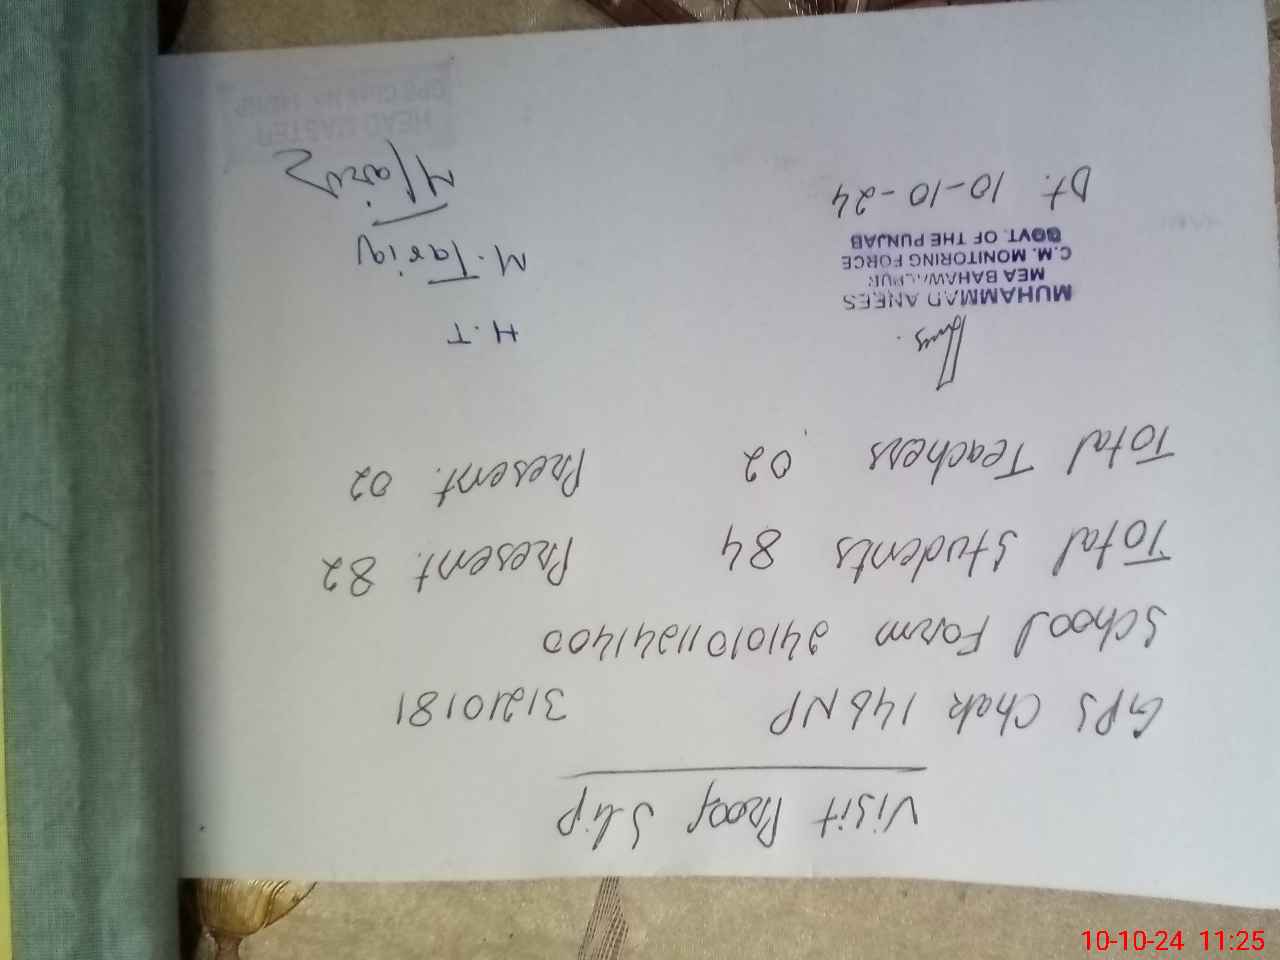 Visit Proof Slip
GPS Chak 146NP 31210181
School Form 24101011241400
Total Students 84 Present. 82
Total Teachers 02 Present. 02
H.T
MUHAMMAD ANEES
MEA BAHAWALPUR
C.M. MONITORING FORCE
GOVT. OF THE PUNJAB
M. Tariq
Dt. 10-10-24
HEAD MASTER
10-10-24 11:25